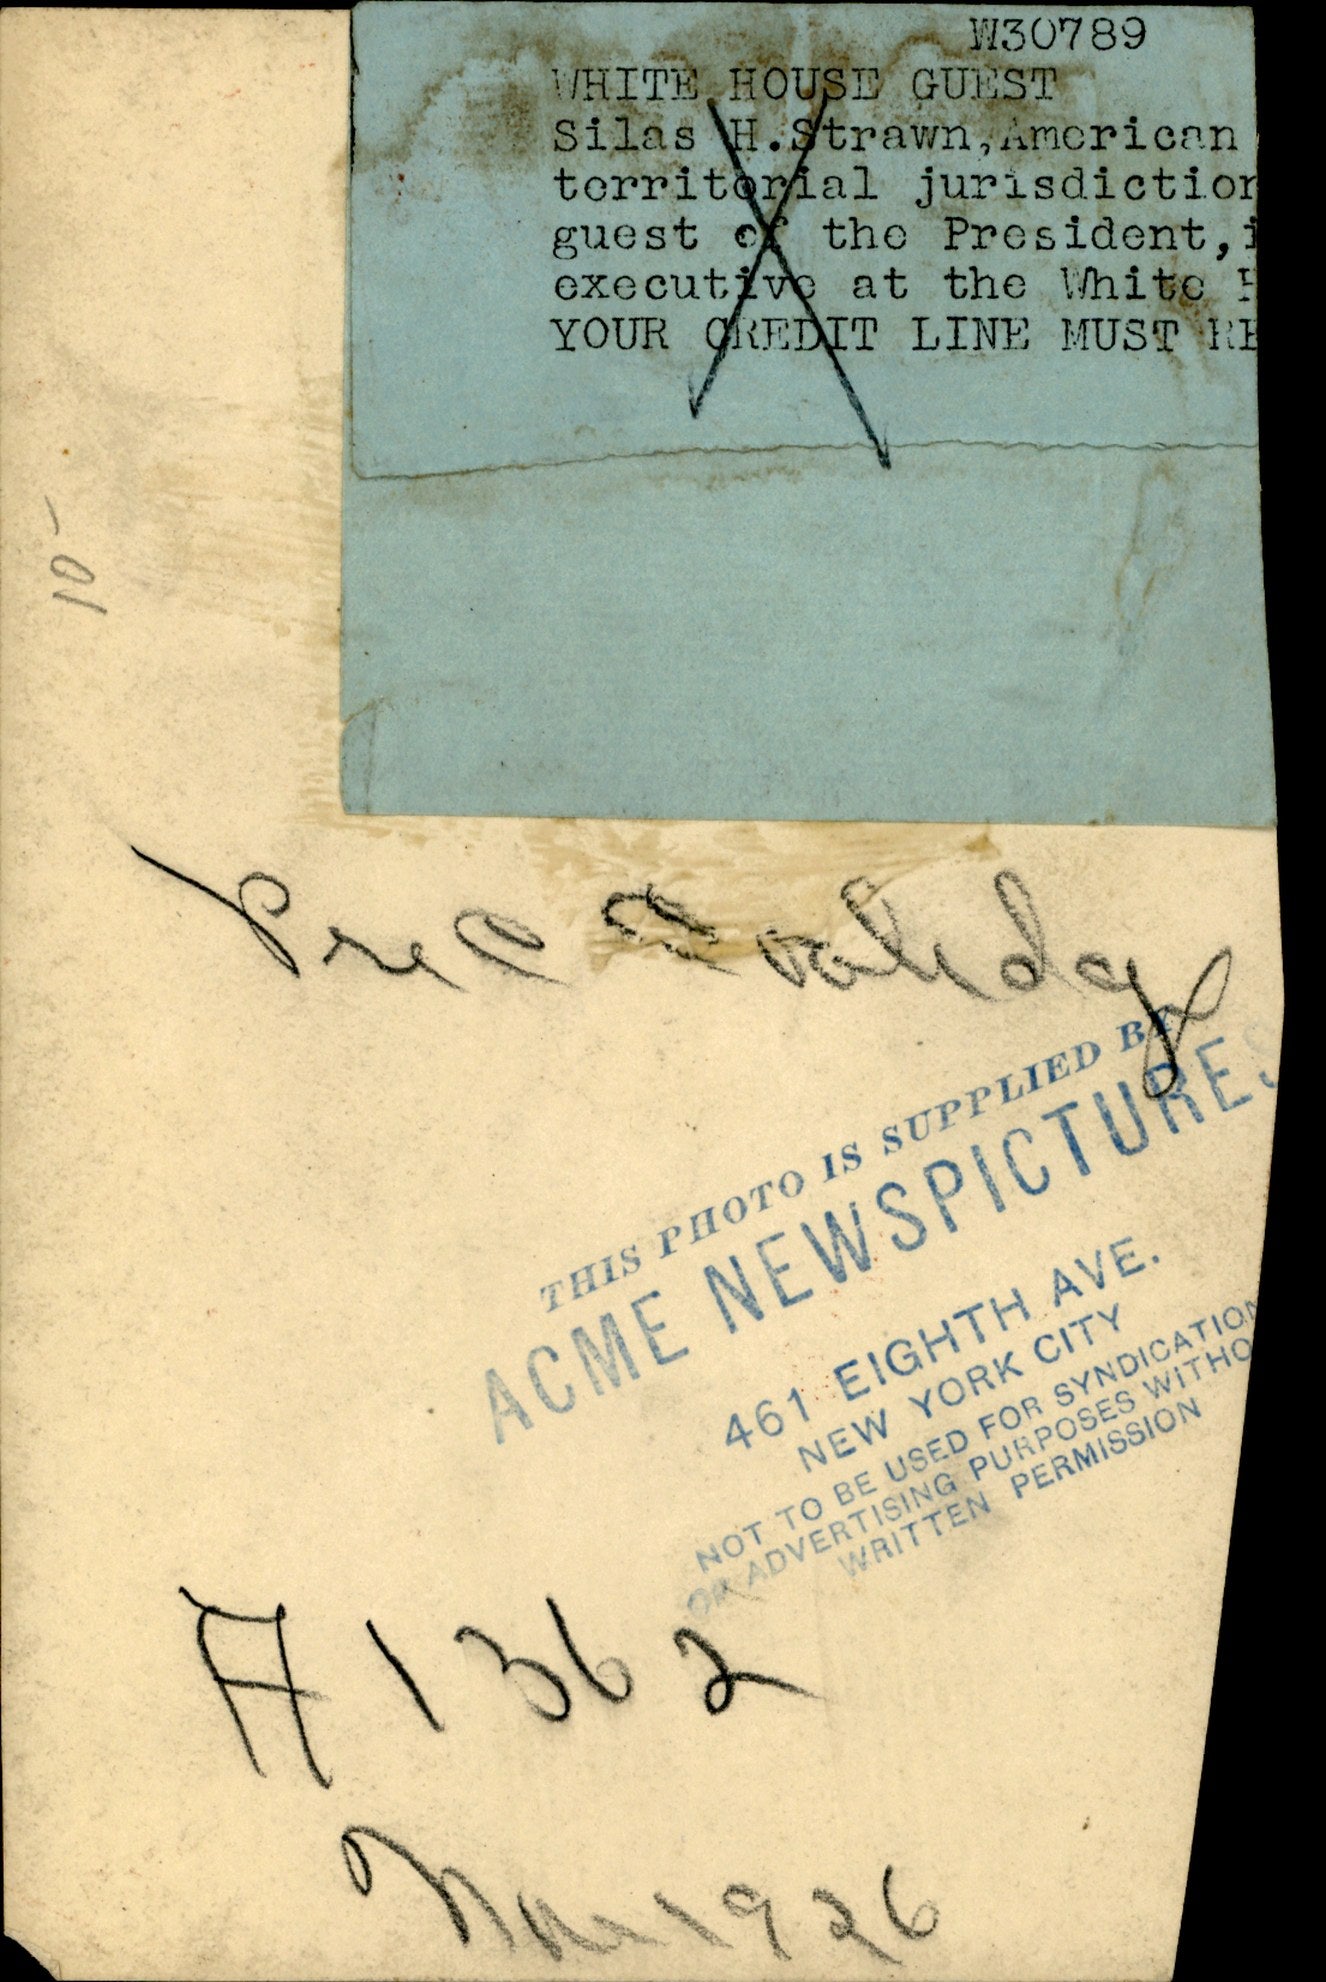 W30789
WHITE HOUSE GUEST
Silas H. Strawn, American
territorial jurisdiction
guest of the President,
executive at the White
YOUR CREDIT LINE MUST RE
10-
Pre C
THIS PHOTO IS SUPPLIED BY
ACME NEWSPICTURES
461 EIGHTH AVE.
NEW YORK CITY
NOT TO BE USED FOR SYNDICATION
OR ADVERTISING PURPOSES WITHO
WRITTEN PERMISSION
A 1362
1926